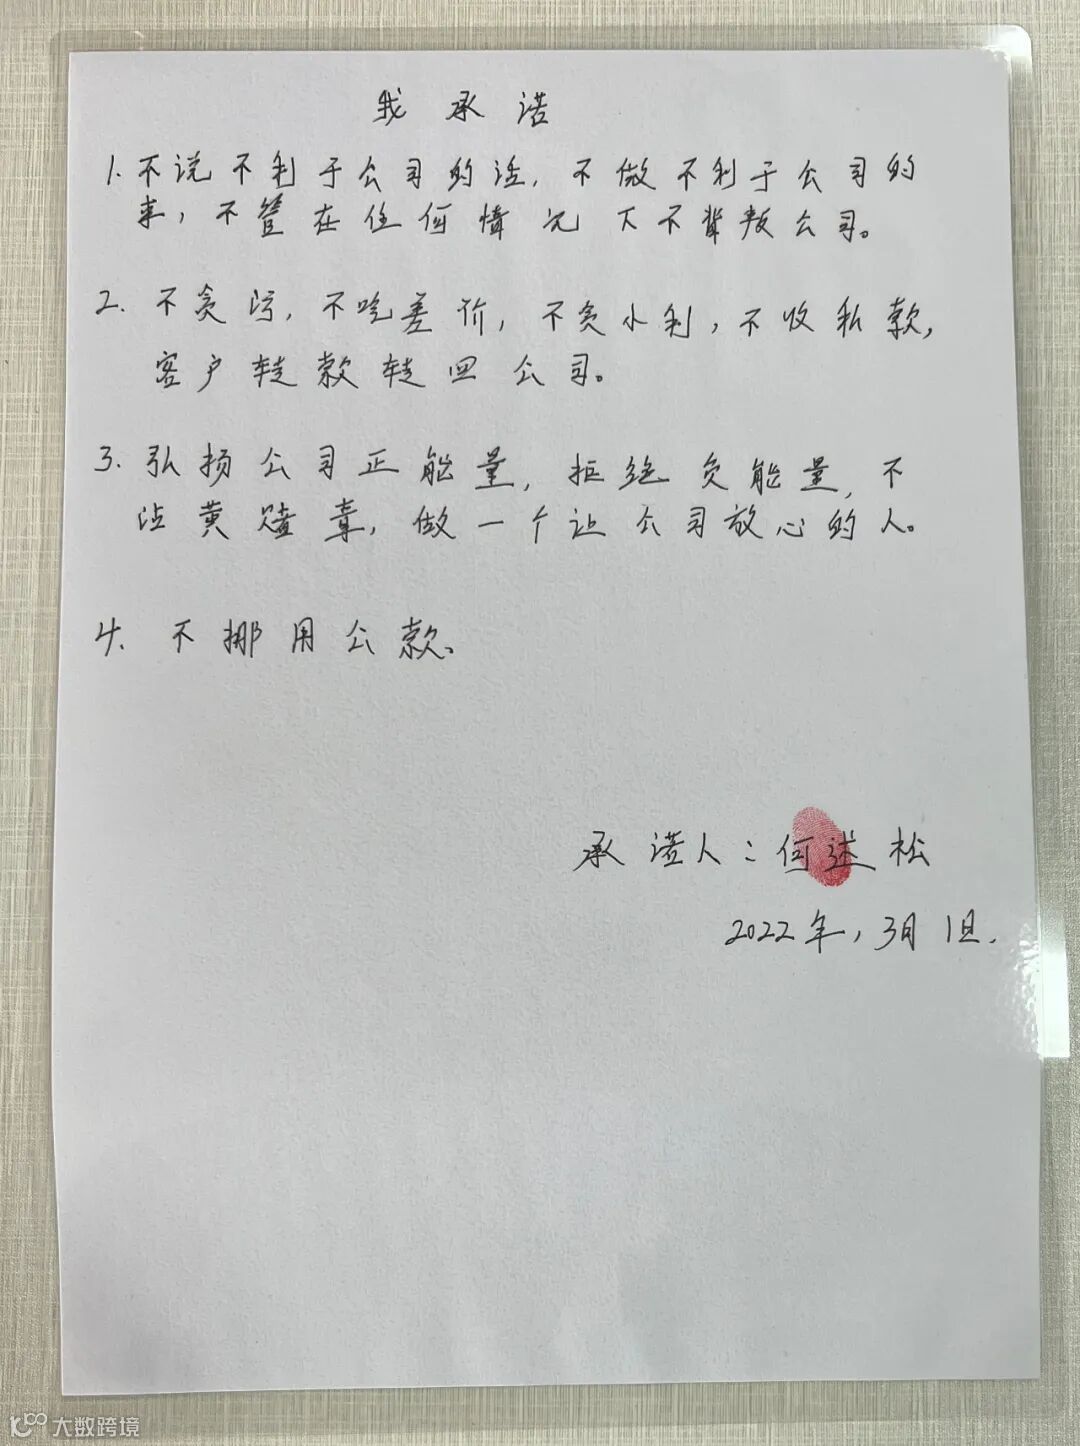 我承诺
1.不说不利于公司的话,不做不利于公司的
事,不管在任何情况下不背叛公司。
2.不贪污,不吃差价,不贪小利,不收私款,
客户转款转回公司。
3.弘扬公司正能量,拒绝负能量,不
沾黄赌毒,做一个让公司放心的人。
4.不挪用公款。
承诺人:何述松
2022年,3月1日.
大数跨境